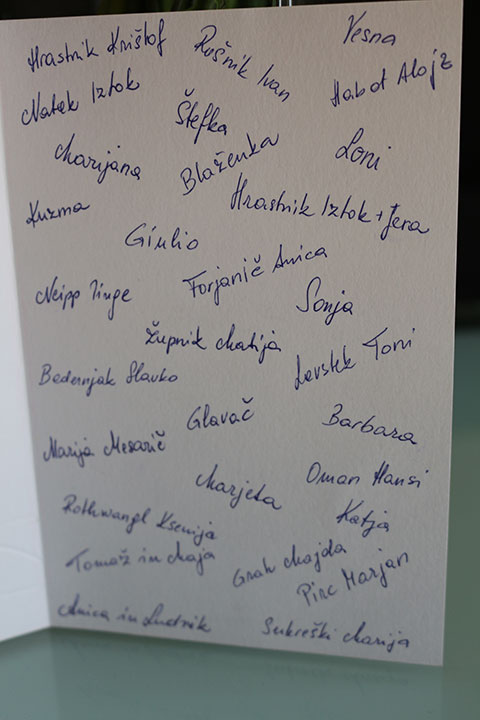 Hrastnik Krištof
Rušnik Ivan
Vesna
Natek Iztok
Štefka
Habot Alojz
Marijana
Blaženka
Loni
Kuzma
Hrastnik Iztok + Jera
Giulio
Forjanič Anica
Neipp Inge
Sonja
Župnik Matija
Levstek Toni
Bedernjak Slavko
Glavač
Barbara
Marija Mesarič
Marjeta
Oman Hansi
Katja
Rothwangl Ksenija
Tomaž in Maja
Grah Majda
Pirc Marjan
Anica in Ludvik
Sukreški Marija